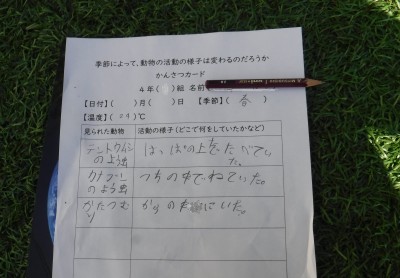 季節によって、動物の活動の様子は変わるのだろうか
かんさつカード
４年（　）組 名前
【日付】（　）月（　）日 【季節】（ 春 ）
【温度】（　）℃
見られた動物 活動の様子（どこで何をしていたかなど）
テントウムシ
のよう虫
はっぱの上で
た。
カナブン
のよう虫
つちの中でねていた。
かたつむ
り
からの中にいた。